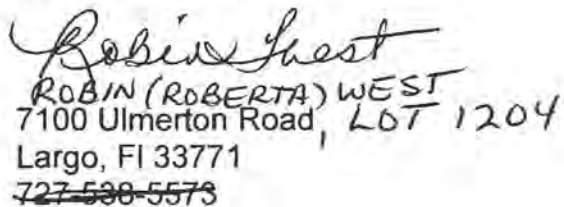 Robin West
ROBIN (ROBERTA) WEST
7100 Ulmerton Road, LOT 1204
Largo, Fl 33771
727-538-5573